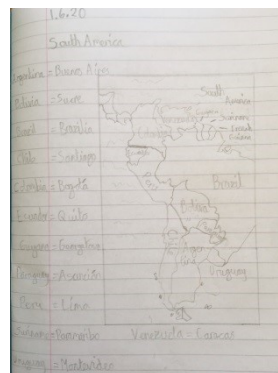 1.6.20
South America
Argentina = Buenos Aires
Bolivia = Sucre
Brazil = Brasilia
Chile = Santiago
Colombia = Bogotá
Ecuador = Quito
Guyana = Georgetown
Paraguay = Asunción
Peru = Lima
Suriname = Paramaribo
Uruguay = Montevideo
Venezuela = Caracas
South
America
Suriname
French
Guiana
Brazil
Bolivia
Argen
tina
Uruguay